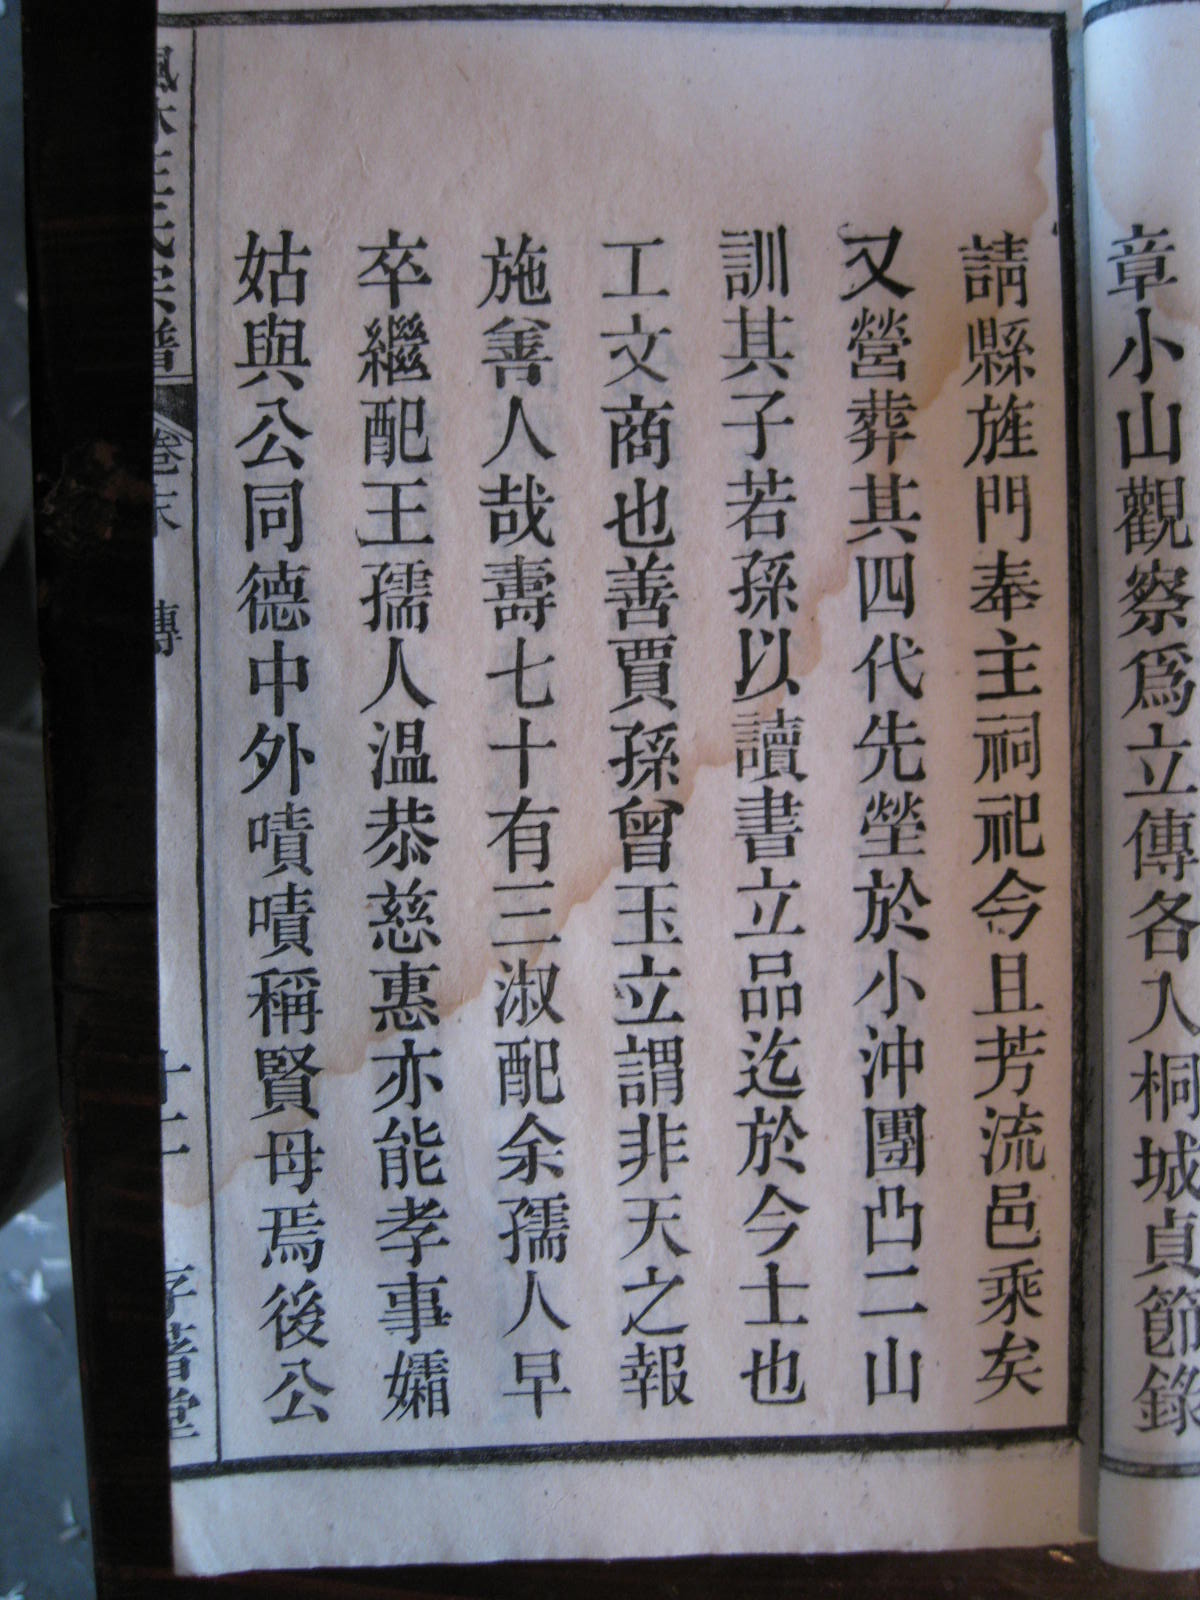 章小山觀察爲立傳各入桐城貞節錄
請縣旌門奉主祠祀今且芳流邑乘矣
又營葬其四代先塋於小沖團凸二山
訓其子若孫以讀書立品迄於今士也
工文商也善賈孫曾玉立謂非天之報
施善人哉壽七十有三淑配余孺人早
卒繼配王孺人温恭慈惠亦能孝事孀
姑與公同德中外嘖嘖稱賢母焉後公
氏宗譜 卷末 傳 十二